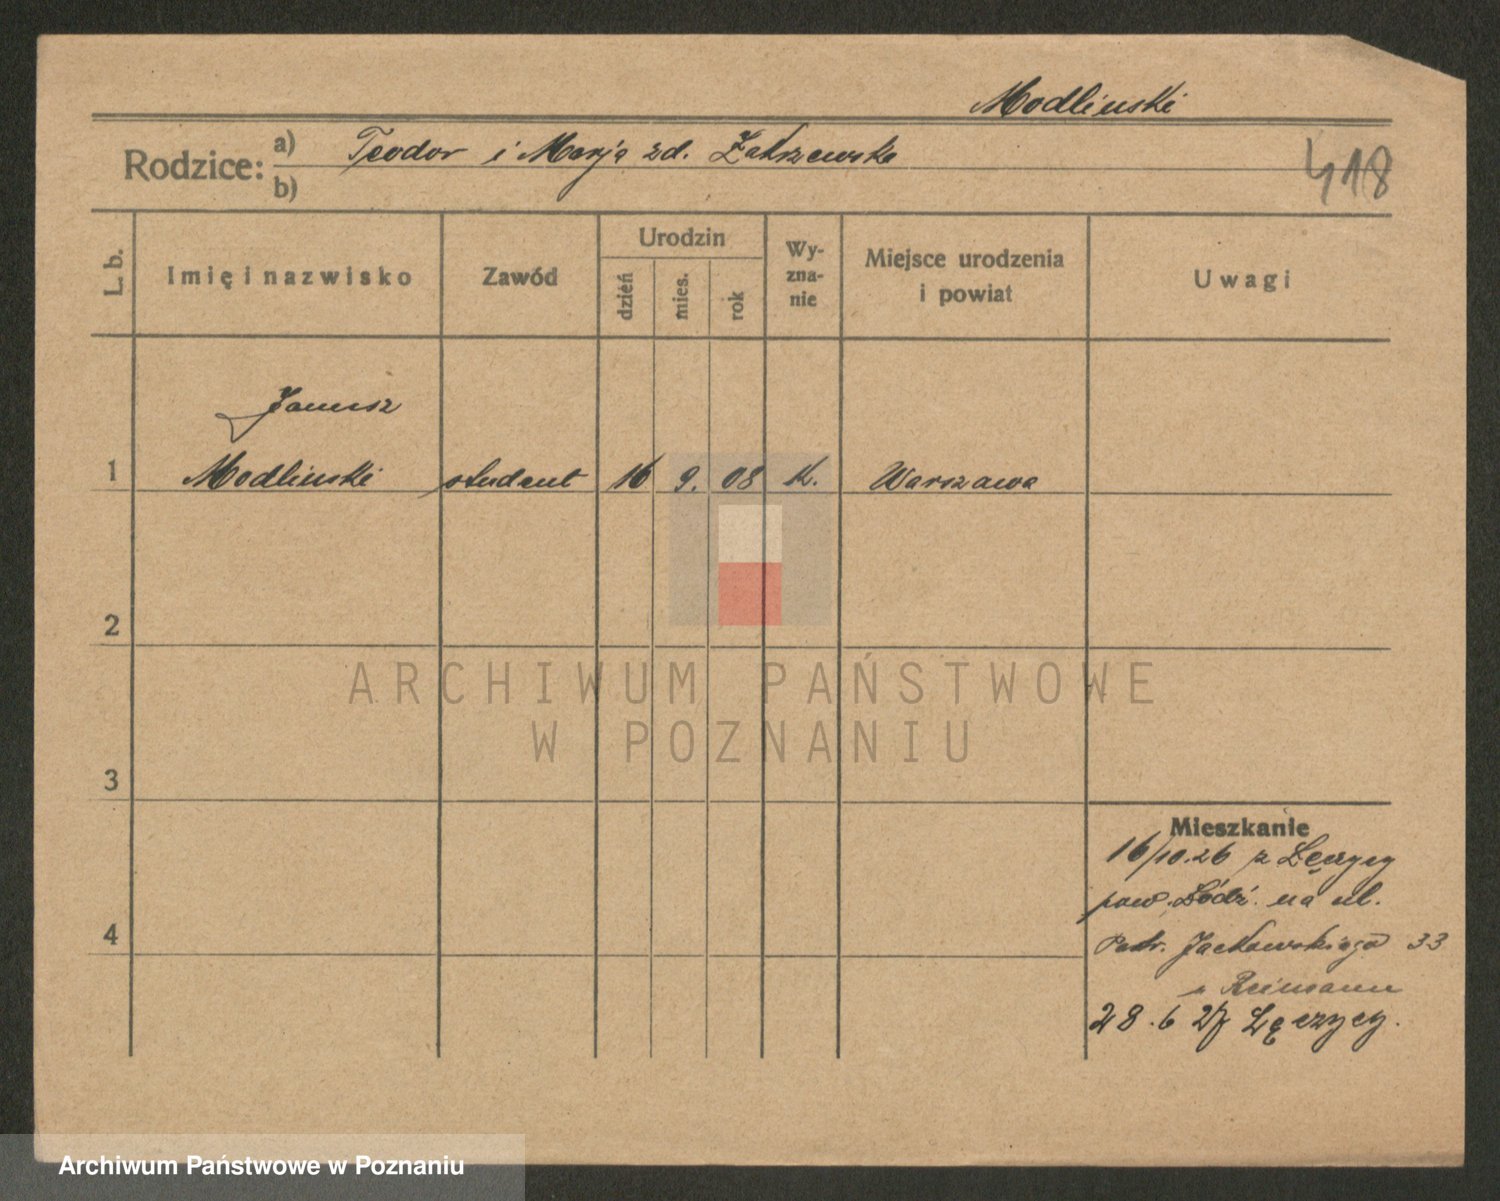 Modlinski
Rodzice: a) Teodor i Marja zd. Zakrzewska
b)
418
L. b. Imię i nazwisko Zawód Urodzin dzień mies. rok Wy-zna-nie Miejsce urodzenia i powiat Uwagi
Janusz
1 Modlinski student 16 9. 08 K. Warszawa
2
3
4
Mieszkanie
16/10.26 z Łęczycy
pow. Łódź. na ul.
Patr. Jackowskiego 33
u Reimann
28.6 27 Łęczycy.
ARCHIWUM PAŃSTWOWE
W POZNANIU
Archiwum Państwowe w Poznaniu